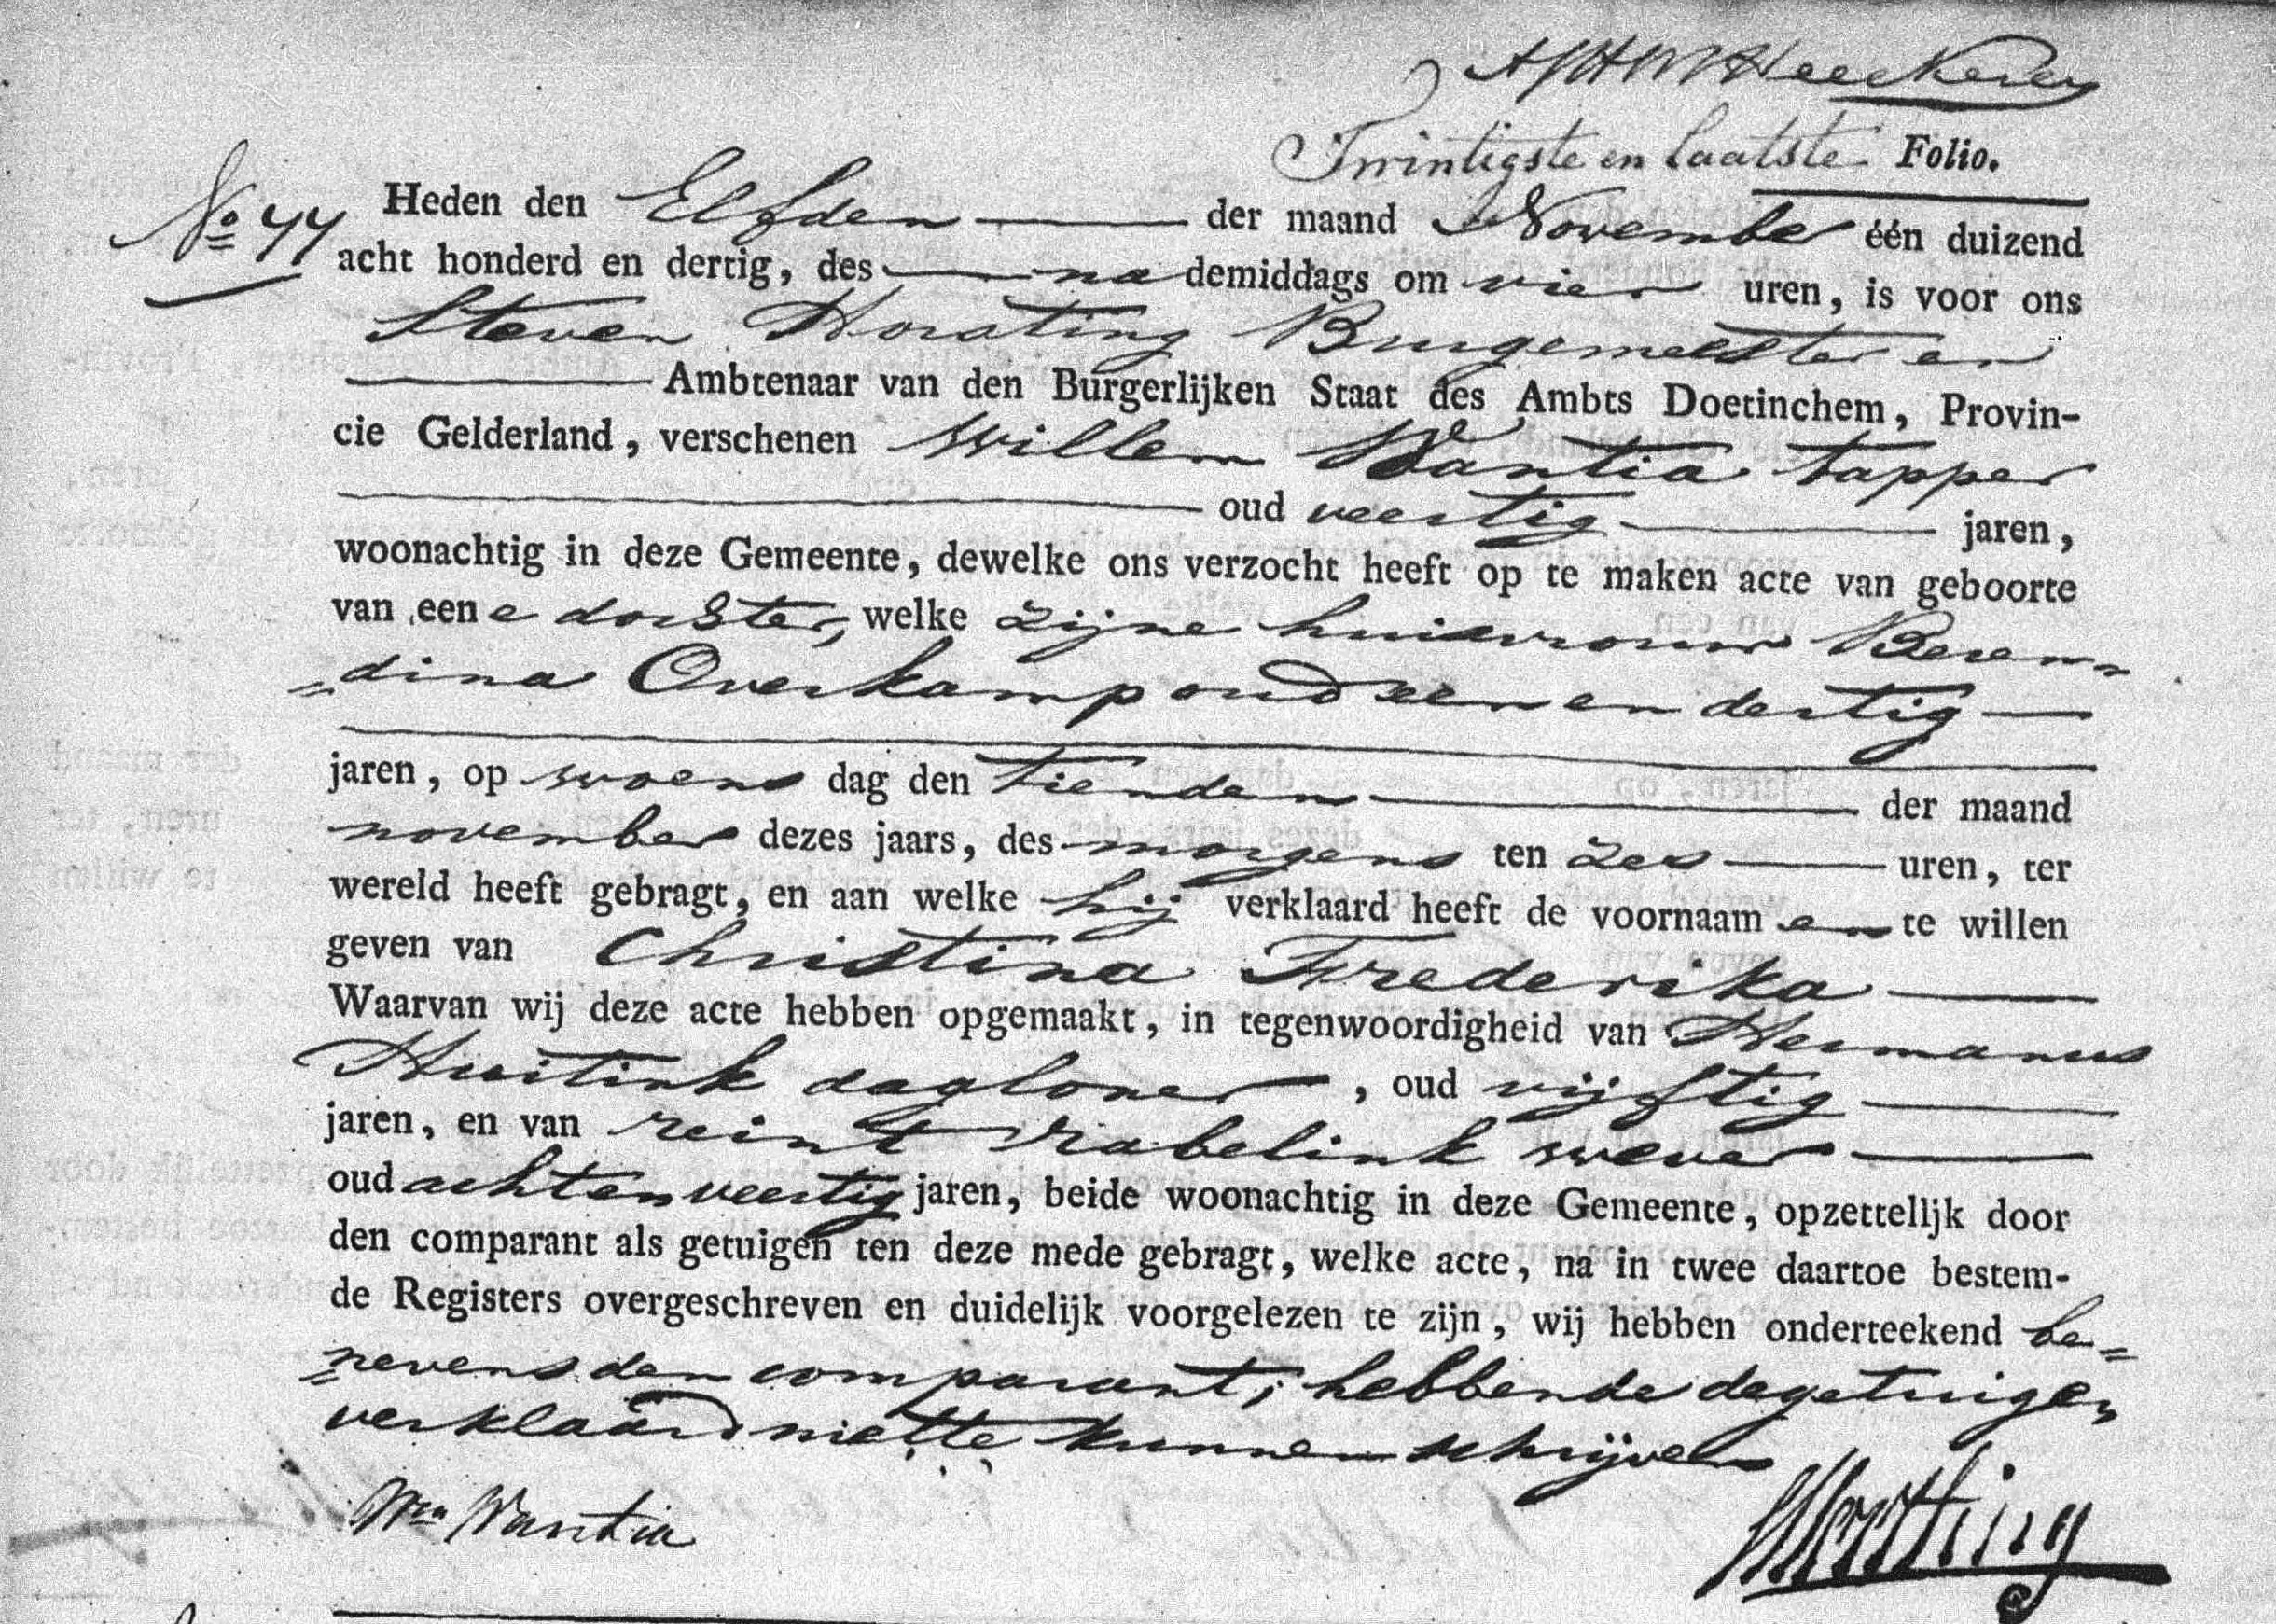 Twintigste en laatste Folio.
No 77 Heden den Elfden der maand November één duizend
acht honderd en dertig, des na demiddags om vier uren, is voor ons
Steven Horsting Burgemeester en
Ambtenaar van den Burgerlijken Staat des Ambts Doetinchem, Provin-
cie Gelderland, verschenen Willem Wantia tapper
oud veertig jaren,
woonachtig in deze Gemeente, dewelke ons verzocht heeft op te maken acte van geboorte
van eene dochter, welke zijne huisvrouw Beren=
=dina Overkamp oud een en dertig
jaren, op woens dag den tienden der maand
november dezes jaars, des morgens ten zes uren, ter
wereld heeft gebragt, en aan welke hij verklaard heeft de voornaam en te willen
geven van Christina Frederika
Waarvan wij deze acte hebben opgemaakt, in tegenwoordigheid van Hermanus
Huitink dagloner, oud vijftig
jaren, en van reint rabelink wever
oud achtenveertig jaren, beide woonachtig in deze Gemeente, opzettelijk door
den comparant als getuigen ten deze mede gebragt, welke acte, na in twee daartoe bestem-
de Registers overgeschreven en duidelijk voorgelezen te zijn, wij hebben onderteekend be=
=nevens den comparant; hebbende de getuigen
verklaard niet te kunnen schrijven
Wm Wantia
SHorsting